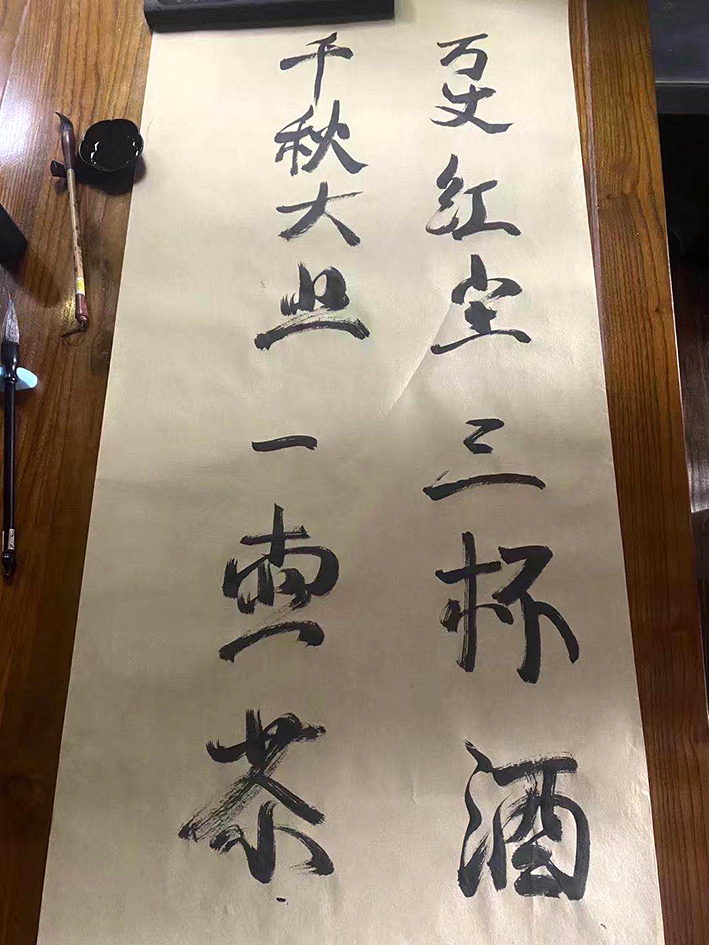 万丈红尘三杯酒
千秋大业一壶茶